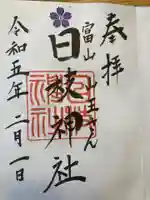 奉拝
富山 山王さん
日枝神社
令和五年二月一日